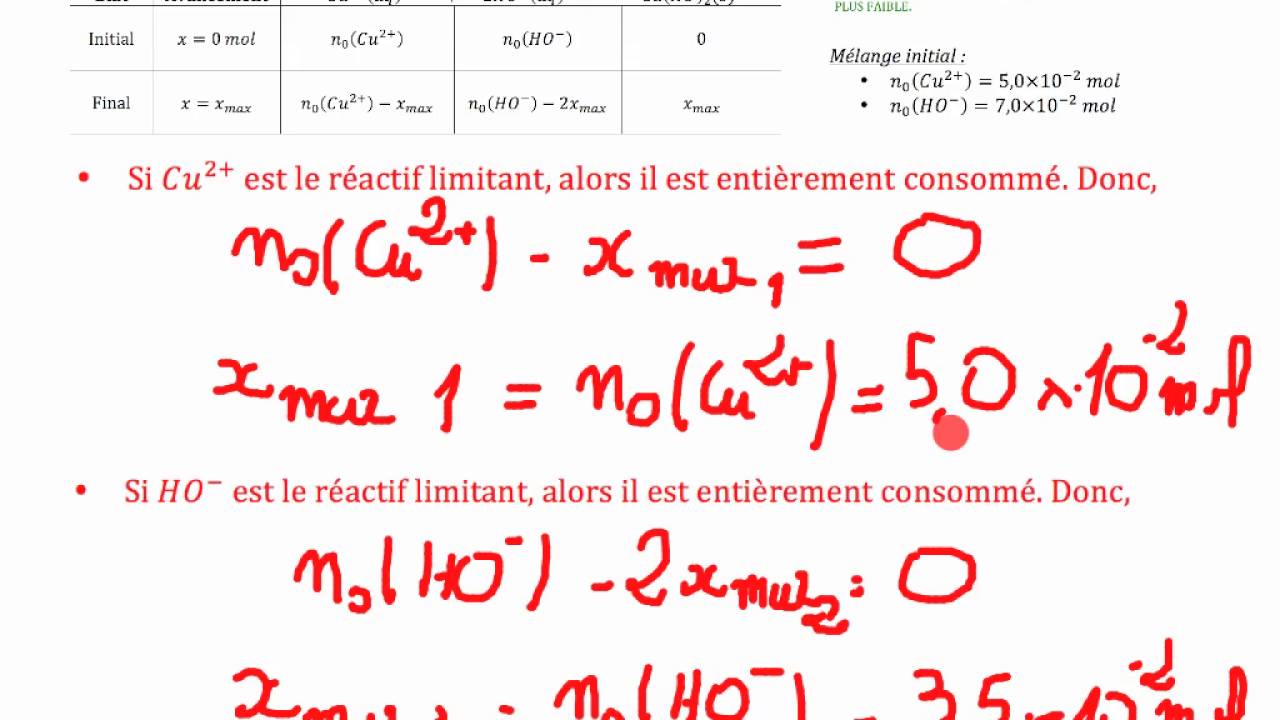 PLUS FAIBLE.
Initial x = 0 mol n₀(Cu²⁺) n₀(HO⁻) 0
Final x = xₘₐₓ n₀(Cu²⁺) − xₘₐₓ n₀(HO⁻) − 2xₘₐₓ xₘₐₓ
Mélange initial :
• n₀(Cu²⁺) = 5,0×10⁻² mol
• n₀(HO⁻) = 7,0×10⁻² mol
• Si Cu²⁺ est le réactif limitant, alors il est entièrement consommé. Donc,
n₀(Cu²⁺) - x max 1 = 0
x max 1 = n₀(Cu²⁺) = 5,0 × 10⁻² mol
• Si HO⁻ est le réactif limitant, alors il est entièrement consommé. Donc,
n₀(HO⁻) - 2 x max 2 = 0